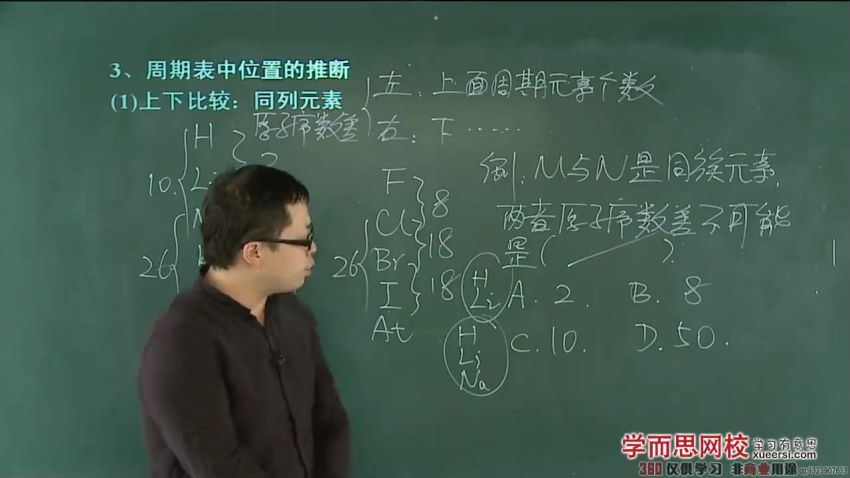 3、周期表中位置的推断
(1)上下比较：同列元素
原子序数差
左：上面周期元素个数
右：下……
H
Li
10
26
F
Cl
Br
I
At
8
18
18
26
例：M与N是同族元素，
两者原子序数差不可能
是(    ).
A. 2    B. 8
C. 10.    D. 50.
H
Li
H
Li
Na
学而思网校
学习有意思
xueersi.com
360仅供学习 非商业用途